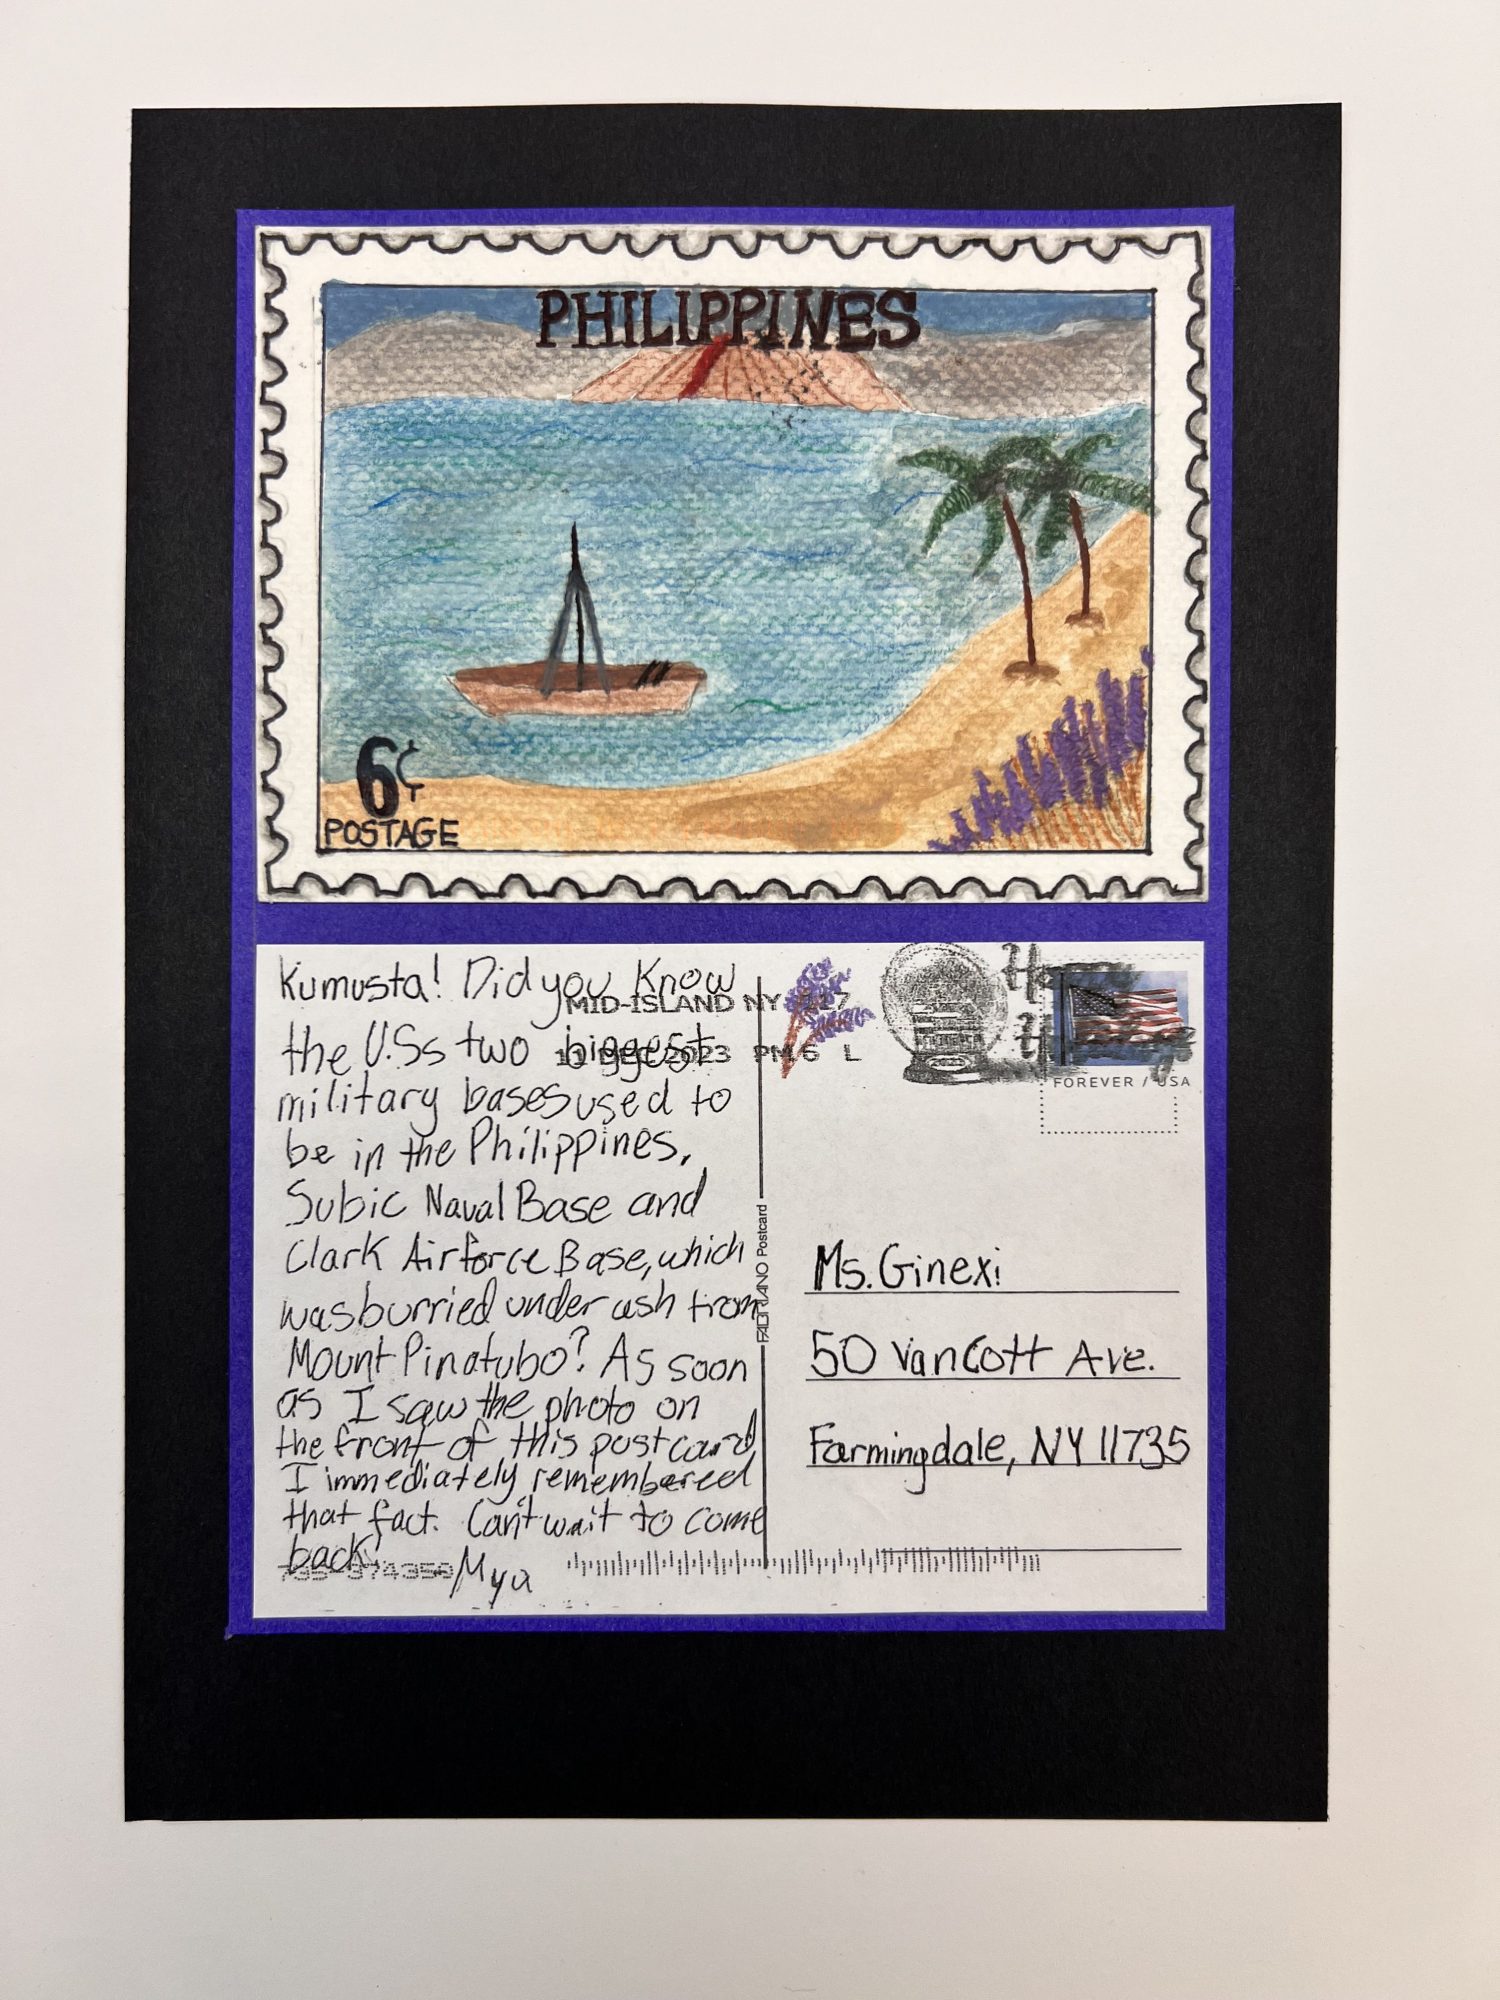 PHILIPPINES
6¢
POSTAGE
Kumusta! Did you Know
the U.Ss two biggest
military bases used to
be in the Philippines,
Subic Naval Base and
Clark Airforce Base, which
was burried under ash from
Mount Pinatubo? As soon
as I saw the photo on
the front of this postcard,
I immediately remembered
that fact. Can't wait to come
back!
-Mya
MID-ISLAND NY 117
11 DEC 2023 PM 6 L
FOREVER / USA
FABRIANO Postcard
Ms. Ginexi
50 Van Cott Ave.
Farmingdale, NY 11735